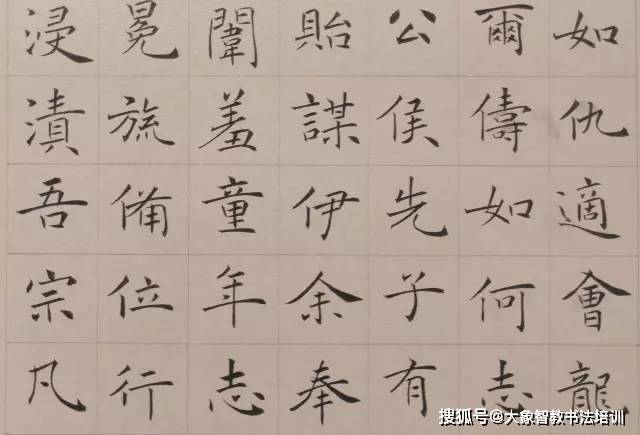 如仇適會龍
爾儔如何志
公侯先子有
貽謀伊余奉
闈羞童年志
冕旒備位行
浸漬吾宗凡
搜狐号@大象智教书法培训